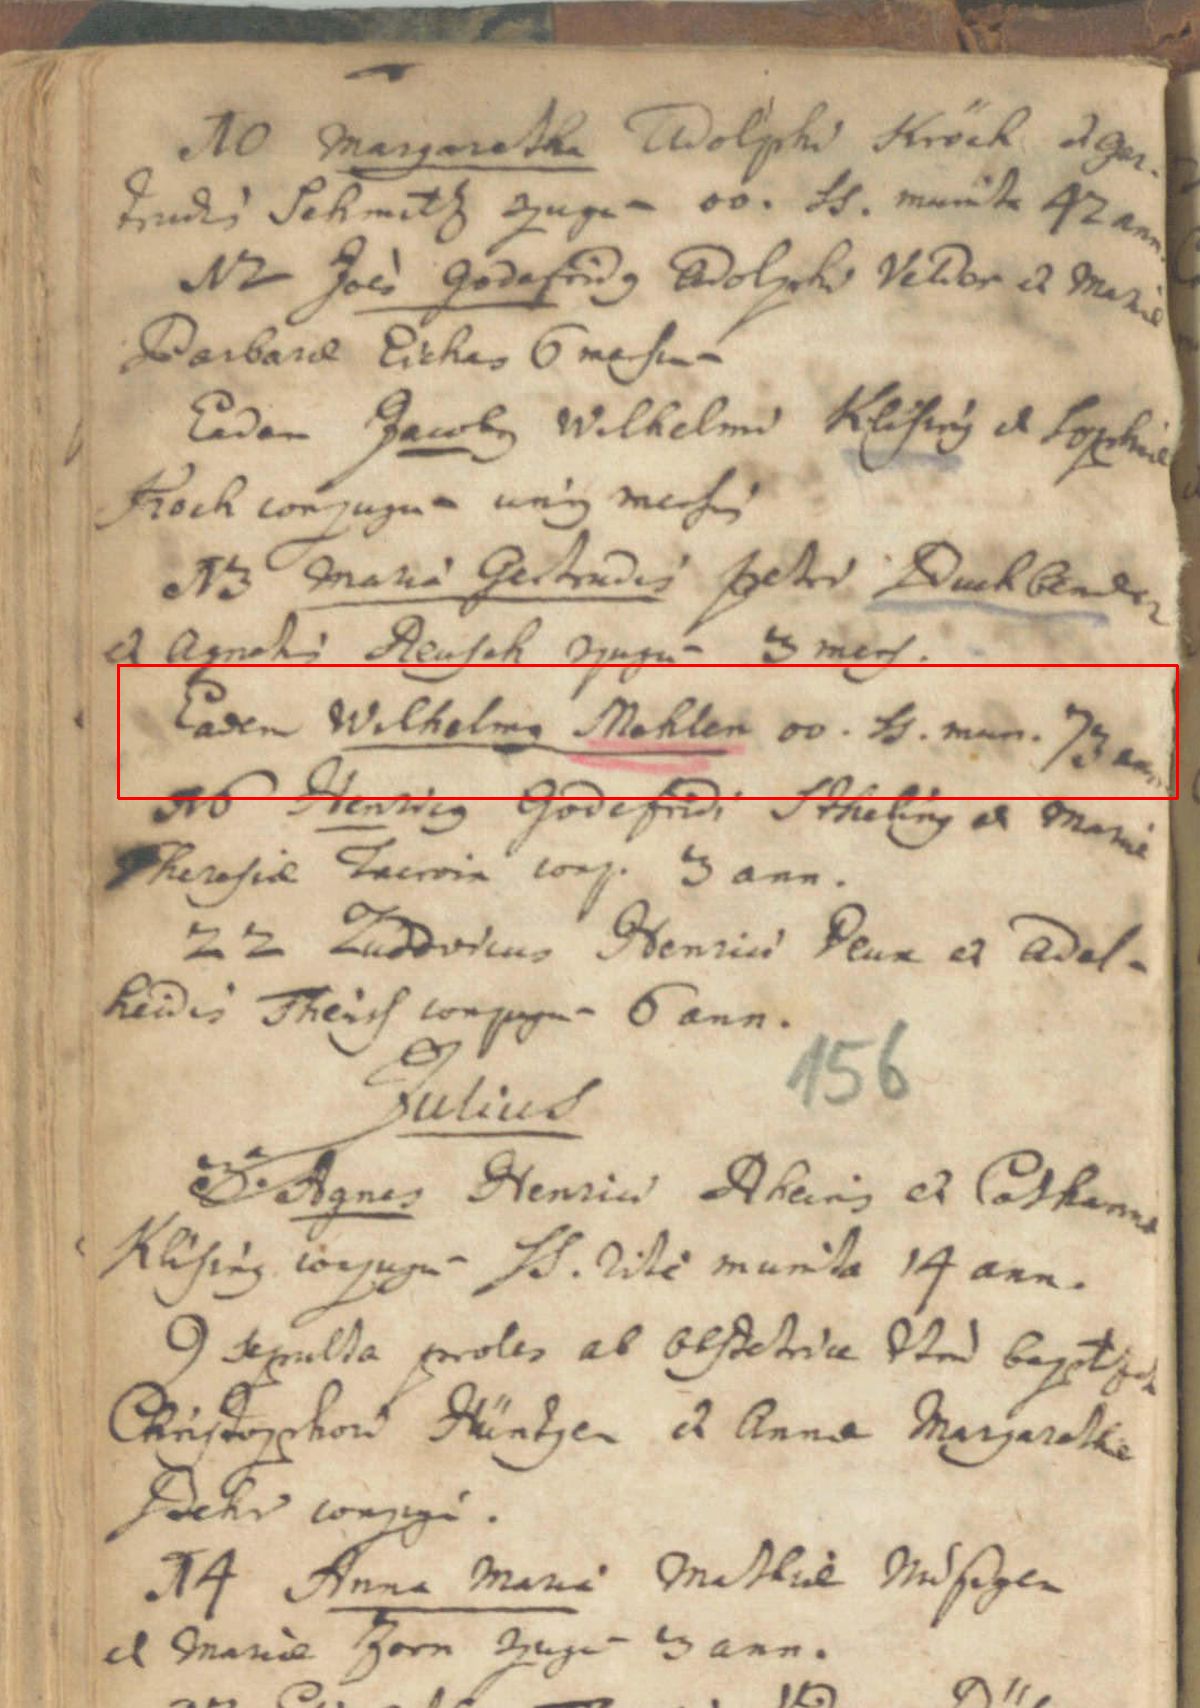 10 Margaretha Adolphi Kröch et Ger-
trudis Schmitz cjugu– oo. SS. munita 42 ann.
12 Joës Godefridg Adolphi Velder et Mariæ
Barbaræ Eickes 6 mensiu–
Eadem Jacobg Wilhelmi Klising et Sophiæ
Kroch conjugu– unig mensis
13 Maria Gertrudis petri Duchbender
et Agnetis Reusch cjugu– 3 mens.
Eadem Wilhelmg Mohlen oo. SS. mun. 73 ann.
16 Henricg Godefridi Stheling et Mariæ
Theresiæ Lacroix conj. 3 ann.
22 Ludovicus Henrici Peux et Adel-
heidis Theisf conjugu– 6 ann.
156
Julius
3 Agnes Henrici Rheinis et Catharinæ
Klising conjugu– SS. rite munita 14 ann.
9 sepulta proles ab obstetrice
Christophori Hüntgen et Annæ Margarethæ
conjugu.
14 Anna Maria Mathiæ Nüsgen
et Mariæ Zorn cjugu– 3 ann.